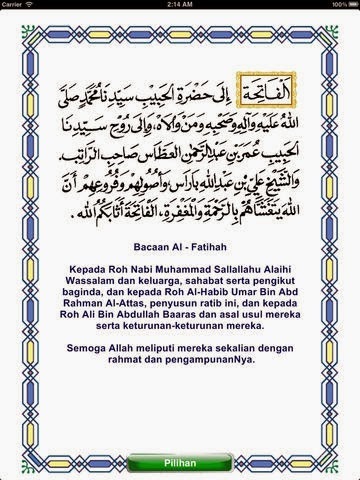 Carrier
2:14 AM
100%
اَلْفَاتِحَة إِلَى حَضْرَةِ الْحَبِيْبِ سَيِّدِنَا مُحَمَّدٍ صَلَّى
اللهُ عَلَيْهِ وَآلِهِ وَصَحْبِهِ وَمَنْ وَالاَهُ، وَإِلَى رُوْحِ سَيِّدِنَا
الْحَبِيْبِ عُمَرَ بْنِ عَبْدِ الرَّحْمٰنِ الْعَطَّاسِ صَاحِبِ الرَّاتِبِ،
وَالشَّيْخِ عَلِيِّ بْنِ عَبْدِ اللهِ بَارَاسٍ وَأُصُوْلِهِمْ وَفُرُوْعِهِمْ أَنَّ
اللهَ يَتَغَشَّاهُمْ بِالرَّحْمَةِ وَالْمَغْفِرَةِ، اَلْفَاتِحَةَ أَثَابَكُمُ اللهُ.
Bacaan Al - Fatihah
Kepada Roh Nabi Muhammad Sallallahu Alaihi
Wassalam dan keluarga, sahabat serta pengikut
baginda, dan kepada Roh Al-Habib Umar Bin Abd
Rahman Al-Attas, penyusun ratib ini, dan kepada
Roh Ali Bin Abdullah Baaras dan asal usul mereka
serta keturunan-keturunan mereka.
Semoga Allah meliputi mereka sekalian dengan
rahmat dan pengampunanNya.
Pilihan